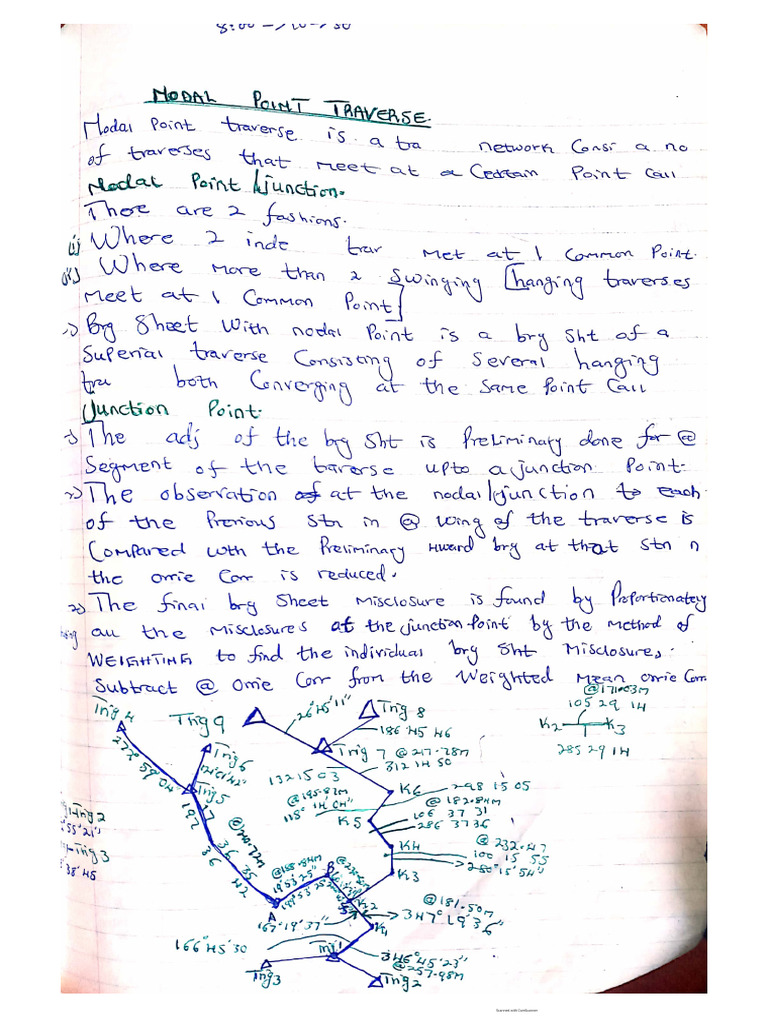 8:00 -> 10->30
NODAL POINT TRAVERSE.
Nodal Point traverse is a tra network Consi a no
of traverses that meet at a Certain Point Call
Nodal Point /junction.
There are 2 fashions.
i) Where 2 inde trav met at 1 Common Point.
ii) Where more than 2 Swinging [hanging traverses
meet at 1 Common Point]
-:) Brg Sheet With nodal Point is a brg Sht of a
Superial traverse Consisting of Several hanging
tra both Converging at the Same Point Call
Junction Point.
The adj of the brg Sht is Preliminary done for @
Segment of the traverse upto a junction Point.
2) The observation of at the nodal/junction to each
of the Previous Stn in @ wing of the traverse is
Compared with the Preliminary Hward brg at that Stn n
the orrie Corr is reduced.
The final brg Sheet Misclosure is found by Proportionately
all the Misclosures at the junction-Point by the Method of
WEIGHTING to find the individual brg Sht Misclosure,
Subtract @ Orrie Corr from the Weighted Mean orrie Corr
@171.03M
105 29 14
K2 K3
285 29 14
Trig 4
Trig 9
26°45'11"
Trig 8
186 45 46
Trig 6
Trig 7 @217.78M
312 14 50
272° 59 04
Trig 5
132 15 03
K6 298 15 05
@195.87M
118° 14' 04"
@182.84M
106 37 31
286 3736
K5
Trig 2
55'21"
Trig 3
38'45
197 36 42
17 36 35
K4
@232.47
100 15 55
280°15'54"
@188.84M
19°53'25"
199°53'25
B
K3
@181.50M
347°19'36"
A
K2
167°19'37"
K1
166°45'30
Trig 1
346°45'23"
@257.98M
Trig3
Trig2